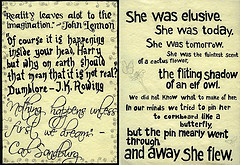 Reality leaves alot to the
imagination." - John Lennon
Of course it is happening
inside your head, Harry
but why on earth should
that mean that it is not real?
Dumbledore - J.K. Rowling
Nothing happens unless
first we dream.
Carl Sandburg
She was elusive.
She was today.
She was tomorrow.
She was the faintest scent
of a cactus flower,
the flitting shadow
of an elf owl.
We did not know what to make of her.
In our minds we tried to pin her
to corkboard like a
butterfly,
but the pin mearly went
through
and away she flew.